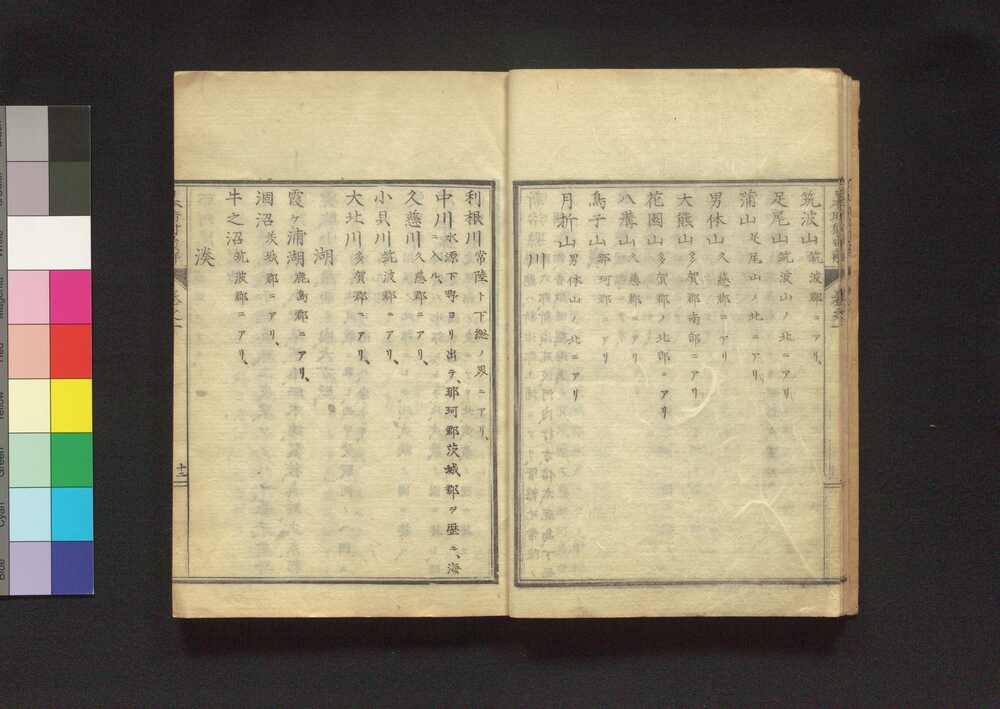 筑波山 筑波郡ニアリ、
足尾山 筑波山ノ北ニアリ
蒲山 足尾山ノ北ニアリ
男体山 久慈郡ニアリ
大熊山 多賀郡南部ニアリ
花園山 多賀郡ノ北部ニアリ
八溝山 久慈郡ニアリ
鳥子山 那珂郡ニアリ
月折山 男体山ノ北ニアリ
川
利根川 常陸ト下總ノ界ニアリ、
中川 水源下野ヨリ出テ、那珂郡茨城郡ヲ歴テ、海ニ入ル、
久慈川 久慈郡ニアリ、
小貝川 筑波郡ニアリ、
大北川 多賀郡ニアリ、
湖
霞ヶ浦湖 鹿島郡ニアリ、
涸沼 茨城郡ニアリ、
牛之沼 筑波郡ニアリ、
湊
十二